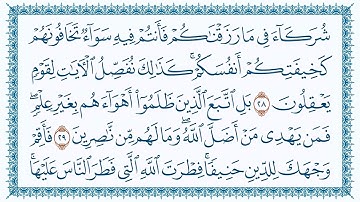 شُرَكَآءَ فِى مَا رَزَقْنَٰكُمْ فَأَنتُمْ فِيهِ سَوَآءٌ تَخَافُونَهُمْ
كَخِيفَتِكُمْ أَنفُسَكُمْ ۚ كَذَٰلِكَ نُفَصِّلُ ٱلْءَايَٰتِ لِقَوْمٍ
يَعْقِلُونَ ٢٨ بَلِ ٱتَّبَعَ ٱلَّذِينَ ظَلَمُوٓا۟ أَهْوَآءَهُم بِغَيْرِ عِلْمٍ ۖ
فَمَن يَهْدِى مَنْ أَضَلَّ ٱللَّهُ ۖ وَمَا لَهُم مِّن نَّٰصِرِينَ ٢٩ فَأَقِمْ
وَجْهَكَ لِلدِّينِ حَنِيفًا ۚ فِطْرَتَ ٱللَّهِ ٱلَّتِى فَطَرَ ٱلنَّاسَ عَلَيْهَا ۚ